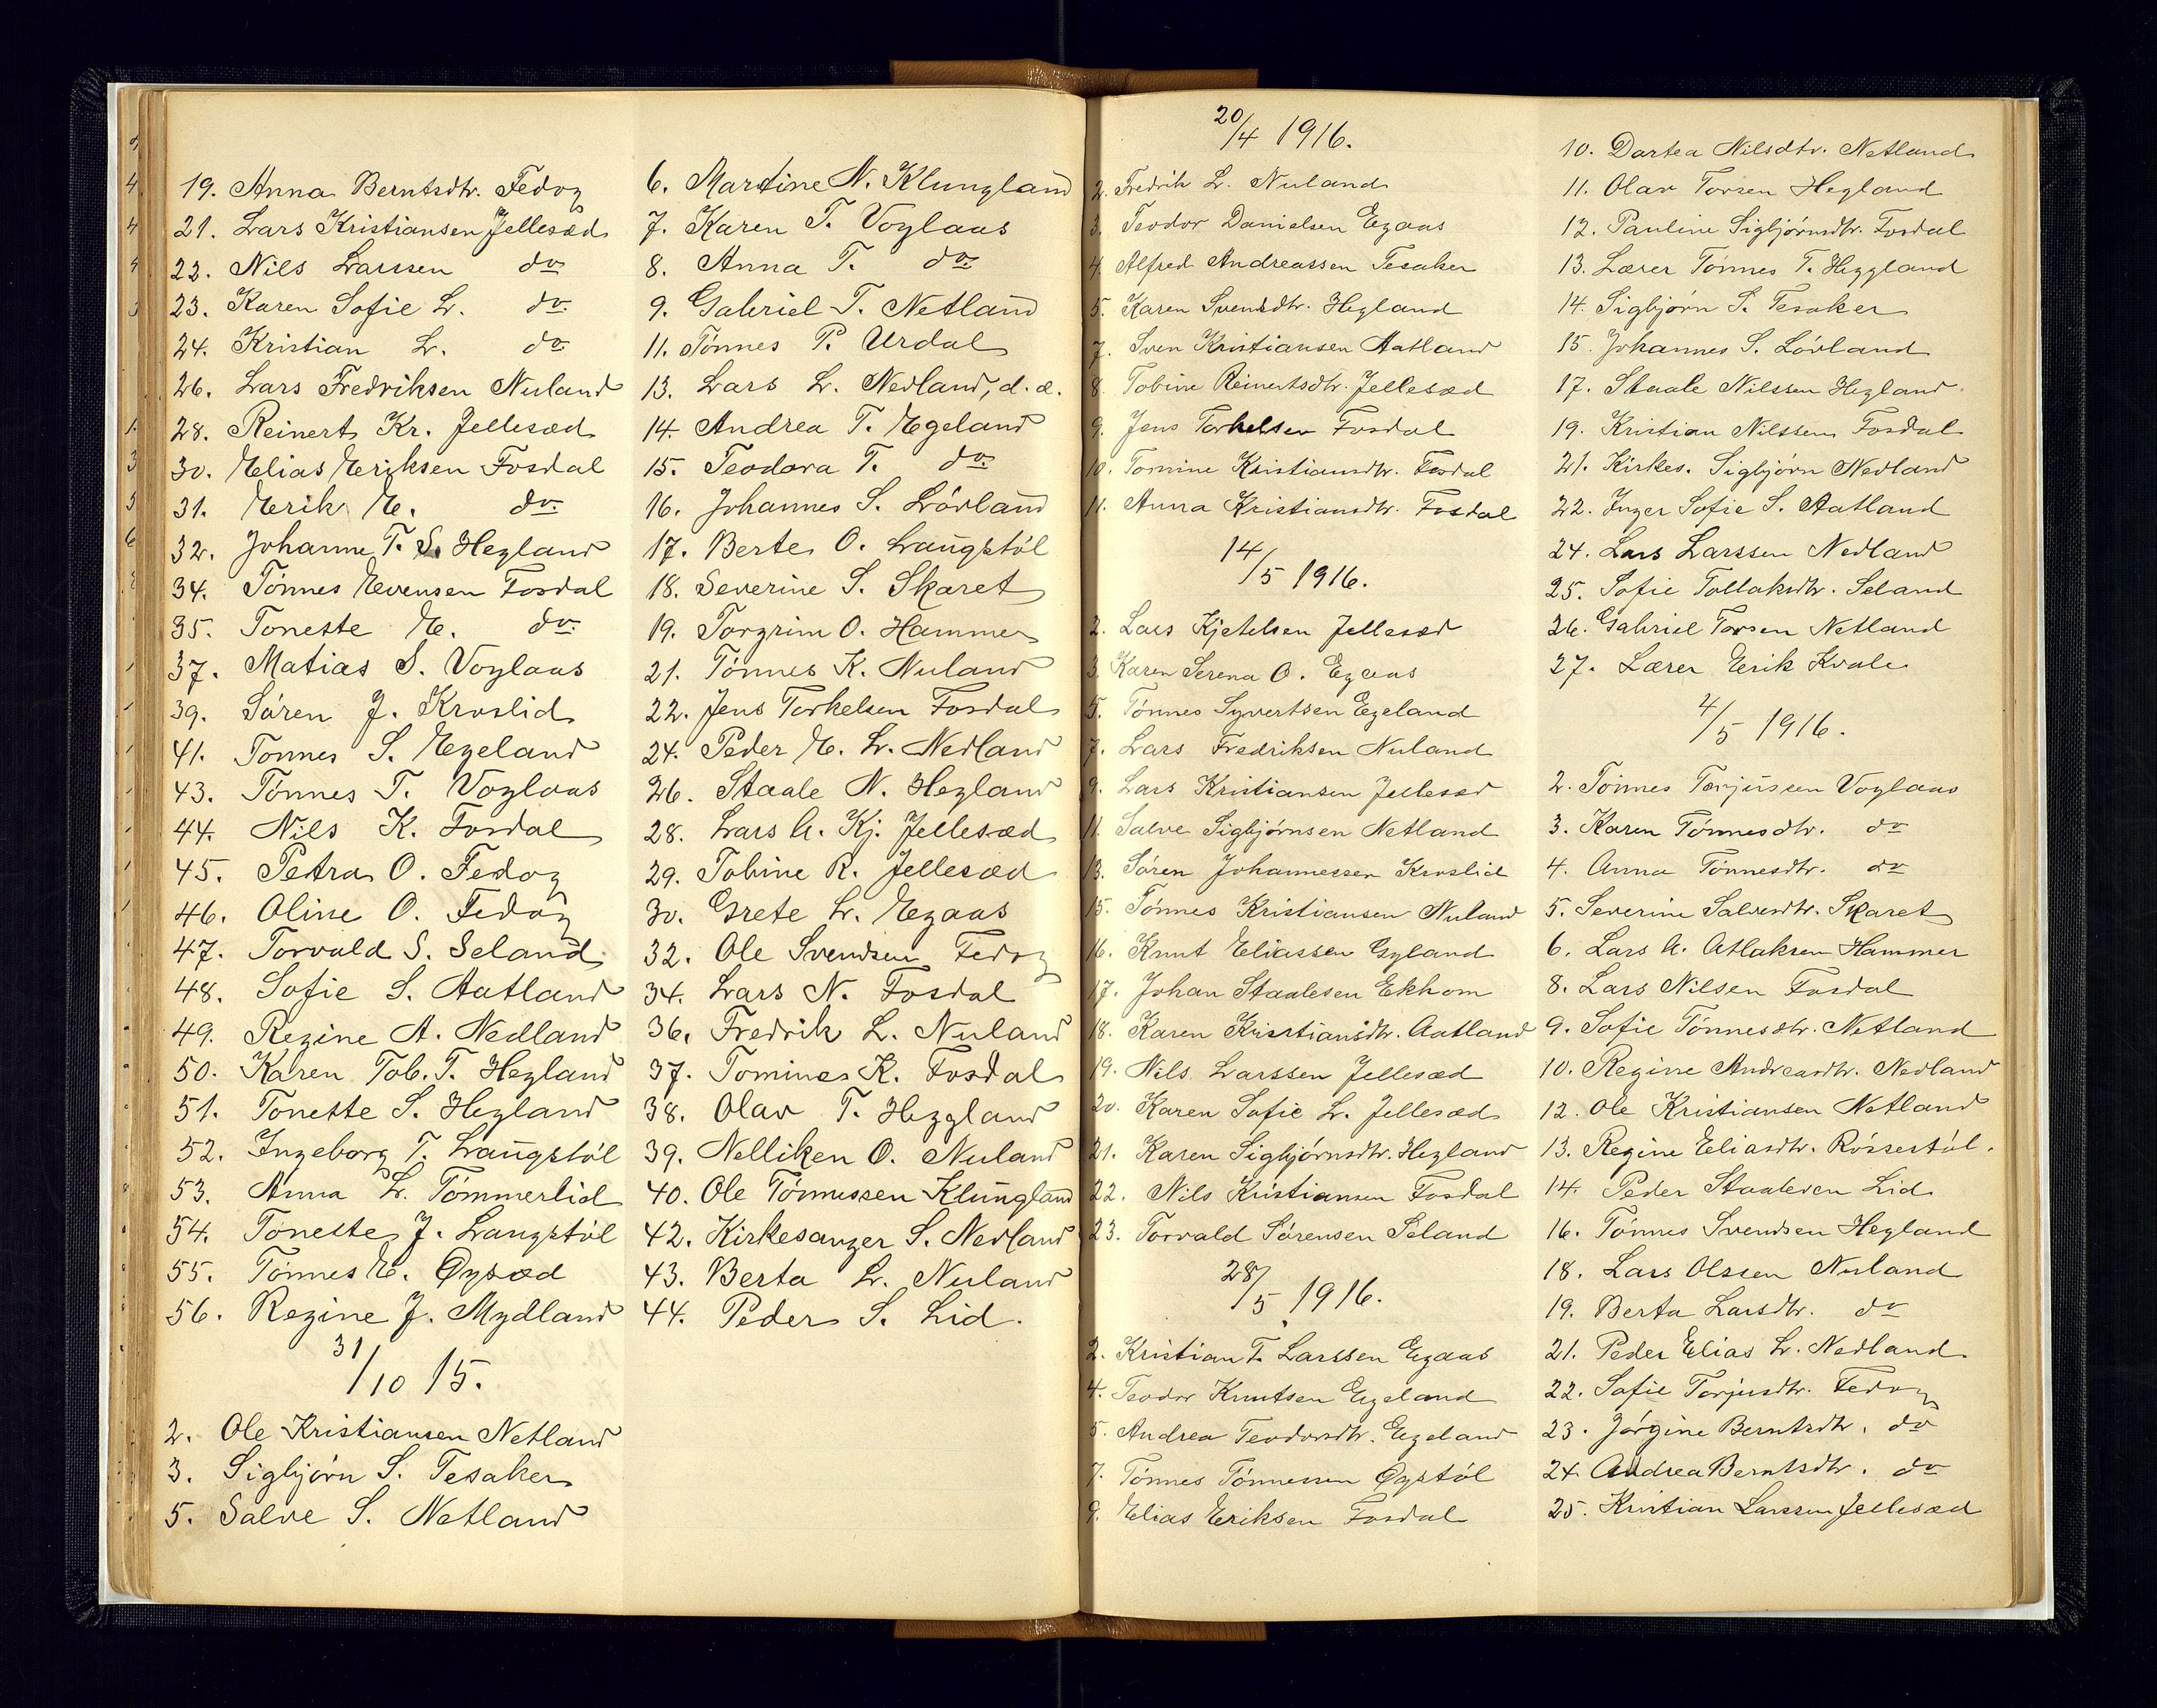 19. Anna Berntsdtr. Fedog
21. Lars Kristiansen Jellesæd
22. Nils Larssen do
23. Karen Sofie L. do
24. Kristian L. do
26. Lars Fredriksen Nuland
28. Reinert Kr. Jellesæd
30. Elias Eriksen Fosdal
31. Erik E. do
32. Johanne T. S. Hegland
34. Tønnes Evensen Fosdal
35. Tonette E. do
37. Matias S. Voglaas
39. Søren J. Kroslid
41. Tønnes S. Egeland
43. Tønnes T. Voglaas
44. Nils K. Fosdal
45. Petra O. Fedog
46. Oline O. Fedog
47. Torvald S. Seland
48. Sofie S. Aatland
49. Regine A. Nedland
50. Karen Tob. T. Hegland
51. Tonette S. Hegland
52. Ingeborg T. Laugstøl
53. Anna L. Tømmerlid
54. Tonette J. Laugstøl
55. Tønnes E. Øysæd
56. Regine J. Mydland
31/10 15.
2. Ole Kristiansen Netland
3. Sigbjørn S. Tesaker
5. Salve S. Netland
6. Martine N. Klungland
7. Karen T. Voglaas
8. Anna T. do
9. Gabriel T. Netland
11. Tønnes P. Urdal
13. Lars L. Nedland, d. æ.
14. Andrea T. Egeland
15. Teodora T. do
16. Johannes S. Løvland
17. Berte O. Laugstøl
18. Severine S. Skaret
19. Torgrim O. Hammer
21. Tønnes K. Nuland
22. Jens Torkelsen Fosdal
24. Peder E. L. Nedland
26. Staale N. Hegland
28. Lars A. Kj. Jellesæd
29. Tobine R. Jellesæd
30. Grete L. Egaas
32. Ole Svendsen Fedog
34. Lars N. Fosdal
36. Fredrik L. Nuland
37. Tomine K. Fosdal
38. Olav T. Heggland
39. Nelliken O. Nuland
40. Ole Tønnessen Klungland
42. Kirkesanger S. Nedland
43. Berta L. Nuland
44. Peder S. Lid.
20/4 1916.
2. Fredrik L. Nuland
3. Teodor Danielsen Egaas
4. Alfred Andreassen Tesaker
5. Karen Svendsdtr. Hegland
7. Sven Kristiansen Aatland
8. Tobine Reinertsdtr. Jellesæd
9. Jens Torkelsen Fosdal
10. Tomine Kristiansdtr. Fosdal
11. Anna Kristiansdtr. Fosdal
14/5 1916.
2. Lars Kjetelsen Jellesæd
3. Karen Serena O. Egaas
5. Tønnes Syvertsen Egeland
7. Lars Fredriksen Nuland
9. Lars Kristiansen Jellesæd
11. Salve Sigbjørnsen Netland
13. Søren Johannessen Kroslid
15. Tønnes Kristiansen Nuland
16. Knut Eliassen Gyland
17. Johan Staalesen Ekhom
18. Karen Kristiansdtr. Aatland
19. Nils Larssen Jellesæd
20. Karen Sofie L. Jellesæd
21. Karen Sigbjørnsdtr. Hegland
22. Nils Kristiansen Fosdal
23. Torvald Sørensen Seland
28/5 1916.
2. Kristian F. Larssen Egaas
4. Teodor Knutsen Egeland
5. Andrea Teodorsdtr. Egeland
7. Tønnes Tønnessen Øystøl
9. Elias Eriksen Fosdal
10. Dortea Nilsdtr. Netland
11. Olav Torsen Hegland
12. Pauline Sigbjørnsdtr. Fosdal
13. Lærer Tønnes T. Heggland
14. Sigbjørn S. Tesaker
15. Johannes S. Løvland
17. Staale Nilssen Hegland
19. Kristian Nilssen Fosdal
21. Kirkes. Sigbjørn Nedland
22. Inger Sofie S. Aatland
24. Lars Larssen Nedland
25. Sofie Tollaksdtr. Seland
26. Gabriel Torsen Netland
27. Lærer Eerik Kvale
4/5 1916.
2. Tønnes Torjussen Voglaas
3. Karen Tønnesdtr. do
4. Anna Tønnesdtr. do
5. Severine Salvesdtr. Skaret
6. Lars A. Atlaksen Hammer
8. Lars Nilsen Fosdal
9. Sofie Tønnesdtr. Netland
10. Regine Andreasdtr. Nedland
12. Ole Kristiansen Netland
13. Regine Eliasdtr. Røssestøl.
14. Peder Staalesen Lid
16. Tønnes Svendsen Hegland
18. Lars Olssen Nuland
19. Berta Larsdtr. do
21. Peder Elias L. Nedland
22. Sofie Torjusdtr. Fedog
23. Jørgine Berntsdtr. do
24. Andrea Berntsdtr. do
25. Kristian Larssen Jellesæd